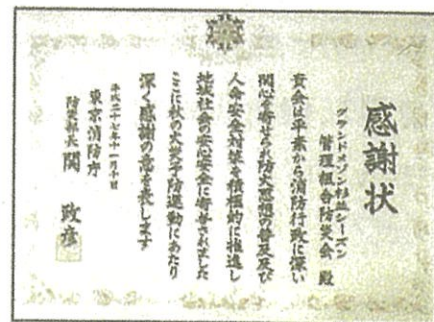 感謝状
グランドメゾン杉並シーズン
管理組合防災会 殿
貴会は平素から消防行政に深い
関心を寄せられ防火思想の普及及び
人命安全対策を積極的に推進し
地域社会の安心安全に寄与されました
ここに秋の火災予防運動にあたり
深く感謝の意を表します
平成二十七年十一月十日
東京消防庁
防災部長 関 政彦